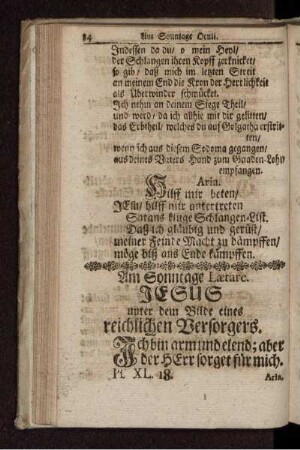 84 Am Sonntage Oculi.
Indessen da du / o mein Heyl /
der Schlangen ihren Kopff zerknicket /
so gib / daß mich im letzten Streit
an meinem End die Kron der Herrlichkeit
als Uberwinder schmücket.
Ich nehm an deinem Siege Theil /
und werd / da ich allhie mit dir gelitten /
das Erbtheil / welches du auf Golgatha erstrit-
ten /
wenn ich aus diesem Sodoma gegangen /
aus deines Vaters Hand zum Gnaden-Lohn
empfangen.
Aria.
Hilff mir beten /
JEsu / hilff mir untertreten
Satans kluge Schlangen-List.
Daß ich gläubig und gerüst /
meiner Feinde Macht zu dämpffen /
möge biß ans Ende kämpffen.
Am Sonntage Lætare.
JESUS
unter dem Bilde eines
reichlichen Versorgers.
Ich bin arm und elend; aber
der HErr sorget für mich.
Ps. XL. 18.
Aria.